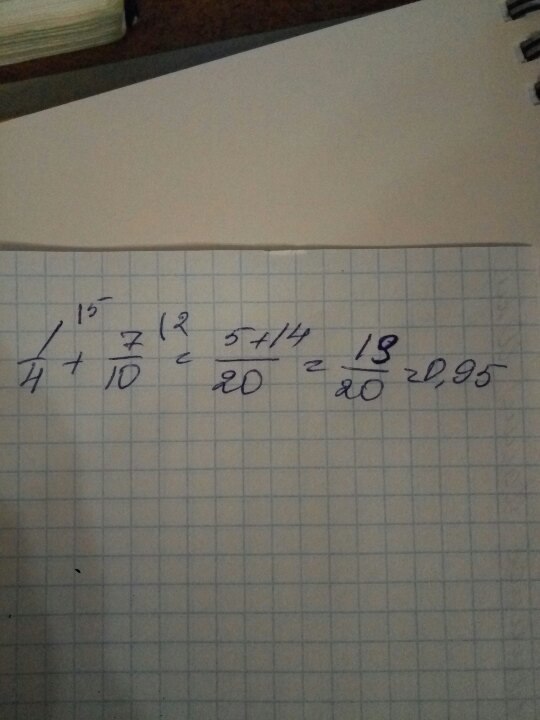 1/4 |5 + 7/10 |2 = 5+14/20 = 19/20 = 0,95